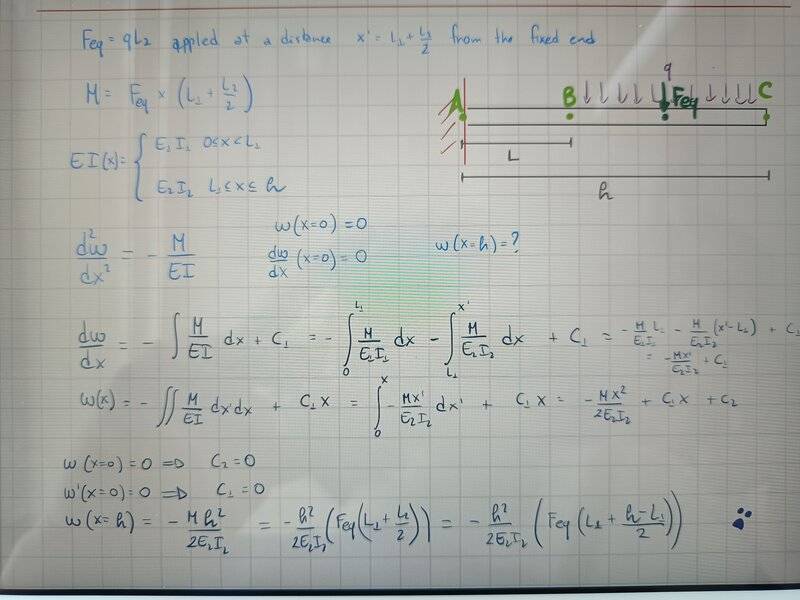 Feq = qL2 applied at a distance x' = L1 + L2/2 from the fixed end
M = Feq × (L1 + L2/2)
q
A B Feq C
EI(x) = { E1I1 0≤x<L1
E2I2 L1≤x≤h
L
h
d²ω/dx² = - M/EI
ω(x=0) = 0
dω/dx (x=0) = 0
ω(x=h) = ?
dω/dx = - ∫ M/EI dx + C1 = - ∫₀^L1 M/E1I1 dx - ∫_L1^x' M/E2I2 dx + C1 = - M/E1I1 L1 - M/E2I2 (x'-L1) + C1
= - Mx'/E2I2 + C1
ω(x) = - ∬ M/EI dx'dx + C1x = ∫₀^x - Mx'/E2I2 dx' + C1x = - Mx²/2E2I2 + C1x + C2
ω(x=0) = 0 => C2 = 0
ω'(x=0) = 0 => C1 = 0
ω(x=h) = - Mh²/2E2I2 = - h²/2E2I2 (Feq(L1 + L2/2)) = - h²/2E2I2 (Feq (L1 + h-L1/2))